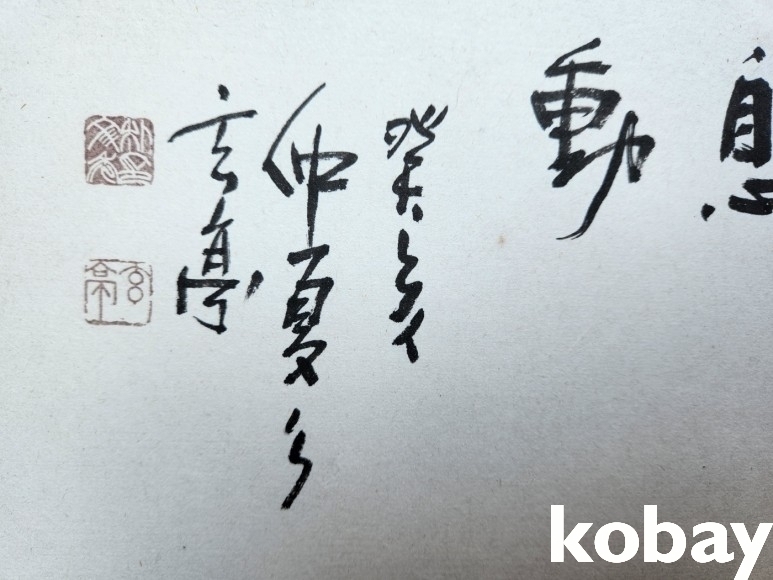 息
動
癸亥
仲夏
玄亭
玄亭
kobay